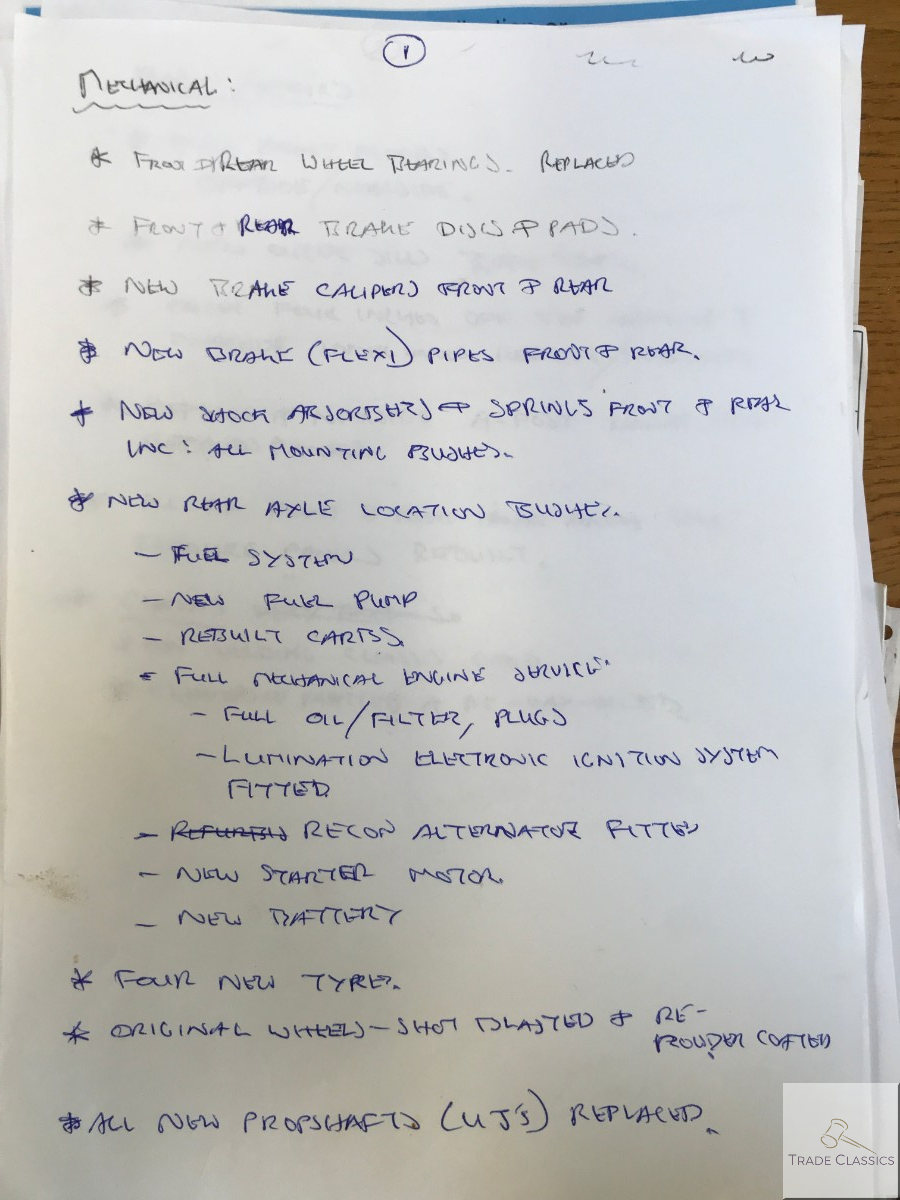 1
MECHANICAL:
* FRONT & REAR WHEEL BEARINGS. REPLACED
* FRONT & REAR BRAKE DISCS & PADS.
* NEW BRAKE CALIPERS FRONT & REAR
* NEW BRAKE (FLEXI) PIPES FRONT & REAR.
* NEW SHOCK ABSORBERS & SPRINGS FRONT & REAR
INC: ALL MOUNTING BUSHES.
* NEW REAR AXLE LOCATION BUSHES.
– FUEL SYSTEM
– NEW FUEL PUMP
– REBUILT CARBS.
– FULL MECHANICAL ENGINE SERVICE.
– FULL OIL/FILTER, PLUGS
– LUMINATION ELECTRONIC IGNITION SYSTEM
FITTED
– RECON ALTERNATOR FITTED
– NEW STARTER MOTOR.
– NEW BATTERY
* FOUR NEW TYRES.
* ORIGINAL WHEELS – SHOT BLASTED & RE-
POWDER COATED
* ALL NEW PROPSHAFTS (UJ'S) REPLACED.
TRADE CLASSICS